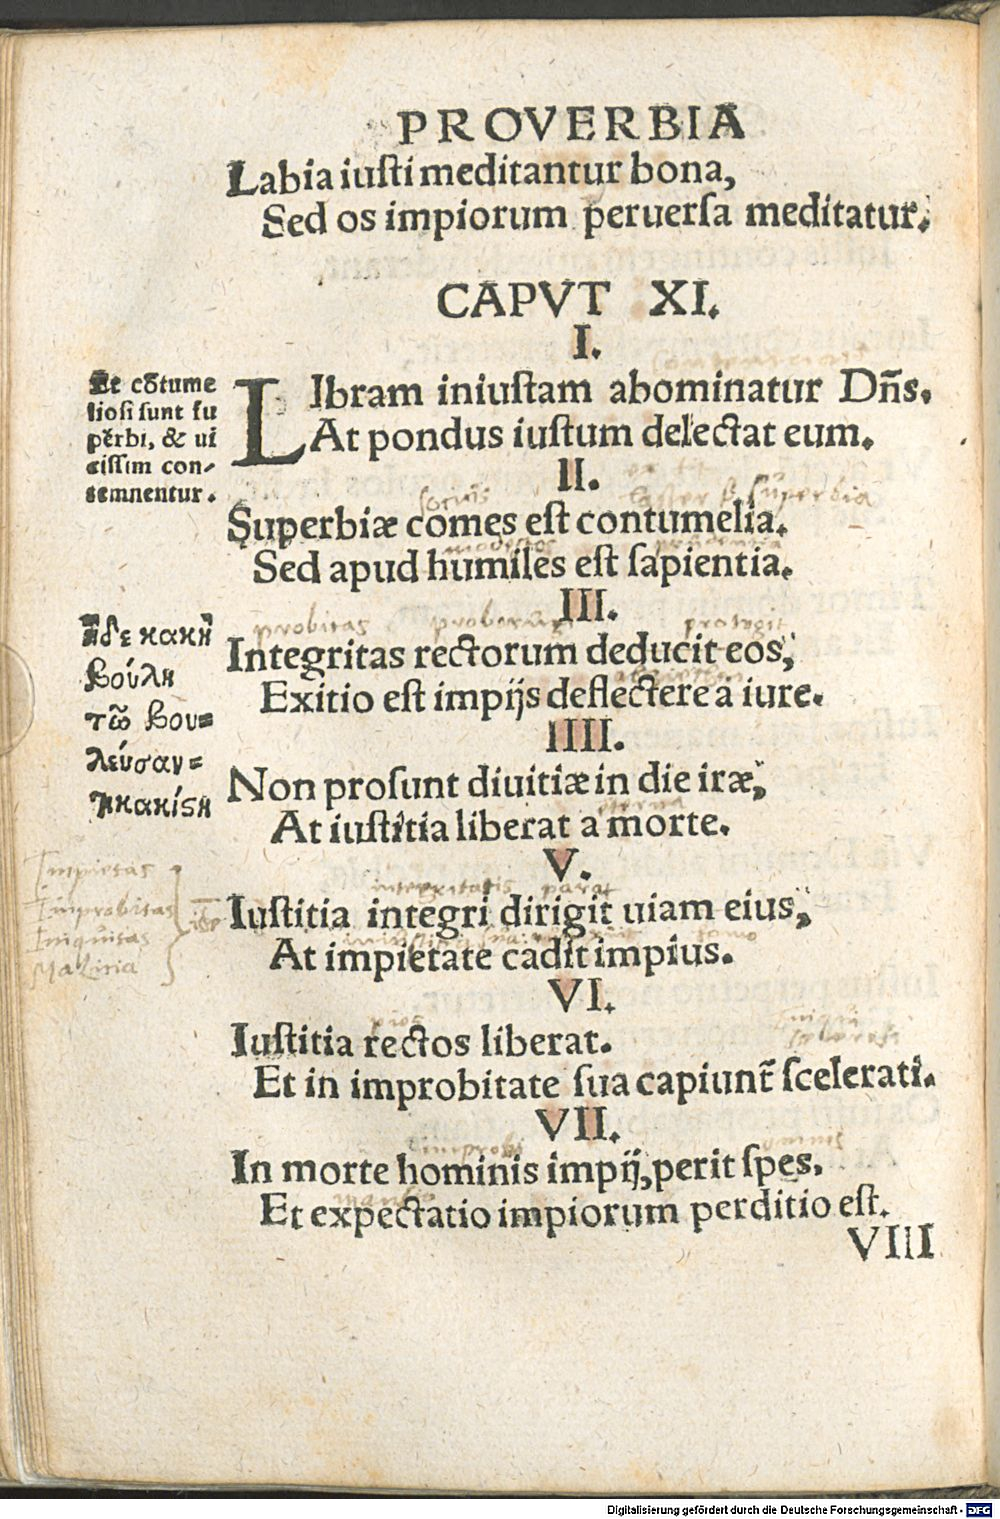 PROVERBIA
Labia iusti meditantur bona,
Sed os impiorum peruersa meditatur.
CAPVT XI.
I.
Et cõtume
liosi sunt su
perbi, & ui
cissim con-
temnentur.
LIbram iniustam abominatur Dñs.
At pondus iustum delectat eum.
II.
socius
Superbiæ comes est contumelia.
modestos
prudentia
Sed apud humiles est sapientia.
III.
probitas proborum protegit
Integritas rectorum deducit eos,
Exitio est impijs deflectere a iure.
Ἡδε κακὴ
βούλη
τῶ βου=
λεύσαν=
τι κακίστη
IIII.
Non prosunt diuitiæ in die iræ,
æterna
At iustitia liberat a morte.
V.
Impietas
Improbitas
Iniquitas
Malitia
integritatis parat
Iustitia integri dirigit uiam eius,
At impietate cadit impius.
VI.
pios
Iustitia rectos liberat.
Et in improbitate sua capiunt̃ scelerati.
VII.
improbi
In morte hominis impij, perit spes.
Et expectatio impiorum perditio est.
VIII
Digitalisierung gefördert durch die Deutsche Forschungsgemeinschaft - DFG